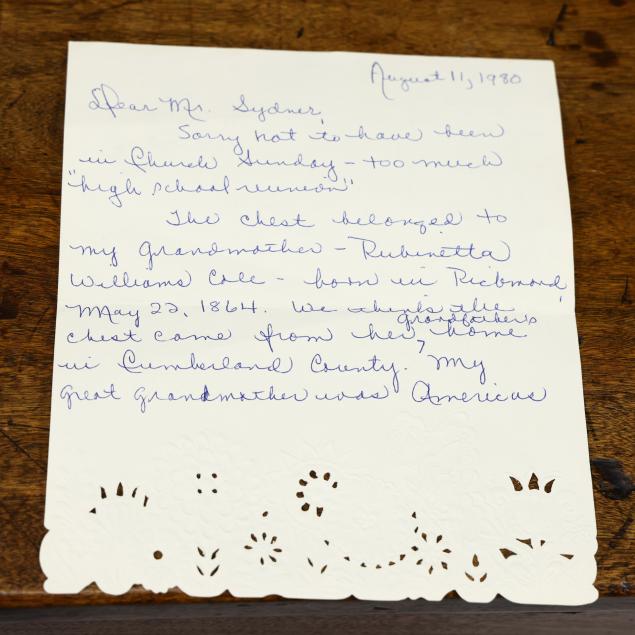 August 11, 1980
Dear Mr. Sydnor,
Sorry not to have been
in Church Sunday - too much
"high school reunion"
The chest belonged to
my grandmother - Rubinetta
Williams Cole - born in Richmond,
May 22, 1864. We think the
grandfather's
chest came from her home
in Cumberland County. My
great grandmother was Americus